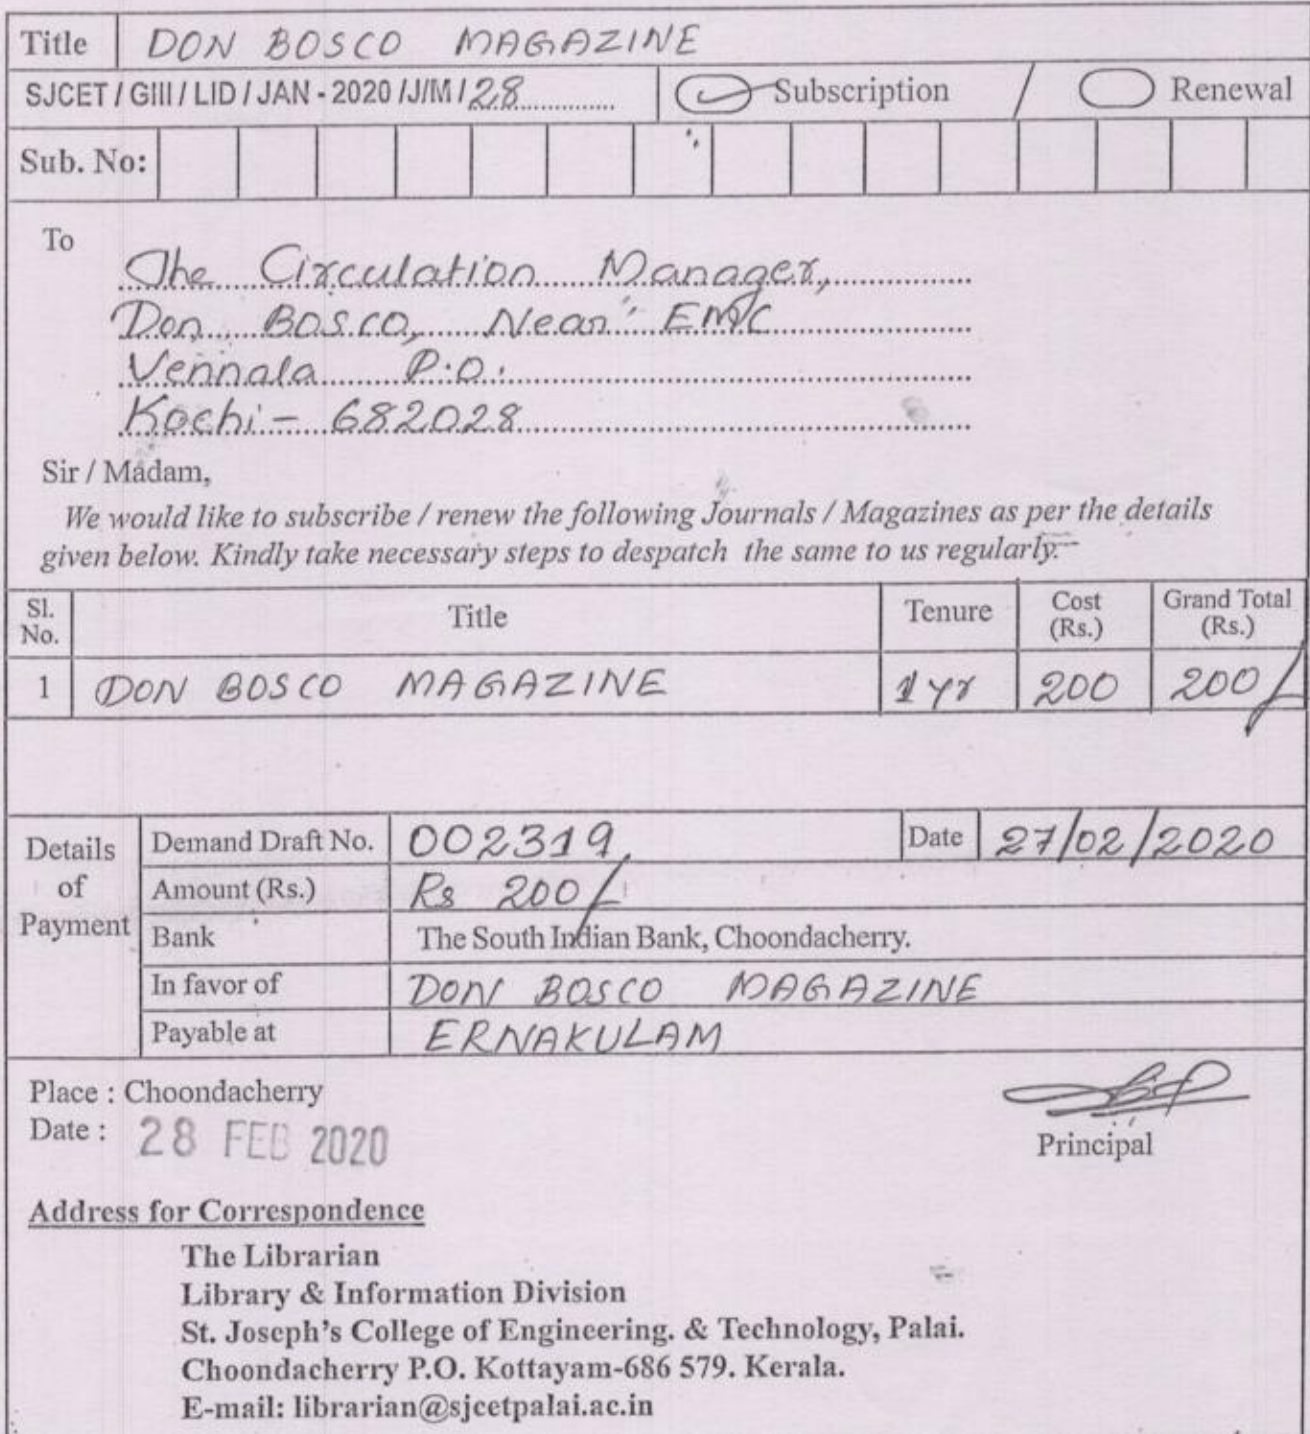 Title DON BOSCO MAGAZINE
SJCET / GIII / LID / JAN - 2020 /J/M / 28 Subscription / Renewal
Sub. No:
To
The Circulation Manager,
Don Bosco, Near EMC
Vennala P.O.
Kochi - 682028
Sir / Madam,
We would like to subscribe / renew the following Journals / Magazines as per the details
given below. Kindly take necessary steps to despatch the same to us regularly.
Sl. No. Title Tenure Cost (Rs.) Grand Total (Rs.)
1 DON BOSCO MAGAZINE 1 yr 200 200/-
Details of Payment
Demand Draft No. 002319 Date 27/02/2020
Amount (Rs.) Rs 200/-
Bank The South Indian Bank, Choondacherry.
In favor of DON BOSCO MAGAZINE
Payable at ERNAKULAM
Place : Choondacherry
Date : 28 FEB 2020
Principal
Address for Correspondence
The Librarian
Library & Information Division
St. Joseph's College of Engineering. & Technology, Palai.
Choondacherry P.O. Kottayam-686 579. Kerala.
E-mail: librarian@sjcetpalai.ac.in